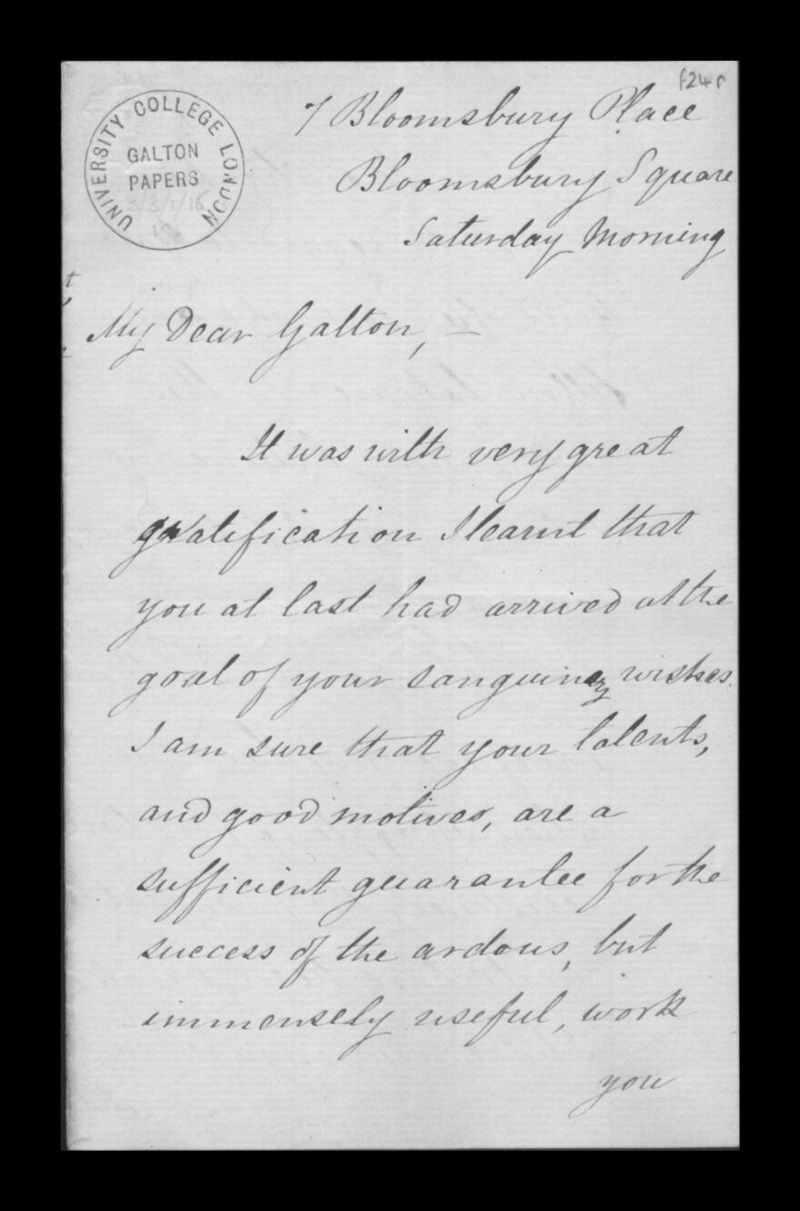 f24r
UNIVERSITY COLLEGE LONDON
GALTON
PAPERS
3/3/1/16
7 Bloomsbury Place
Bloomsbury Square
Saturday Morning
My Dear Galton, —
It was with very great
gratification I learnt that
you at last had arrived at the
goal of your sanguine wishes.
I am sure that your talents,
and good motives, are a
sufficient guarantee for the
success of the ardous, but
immensely useful, work
you